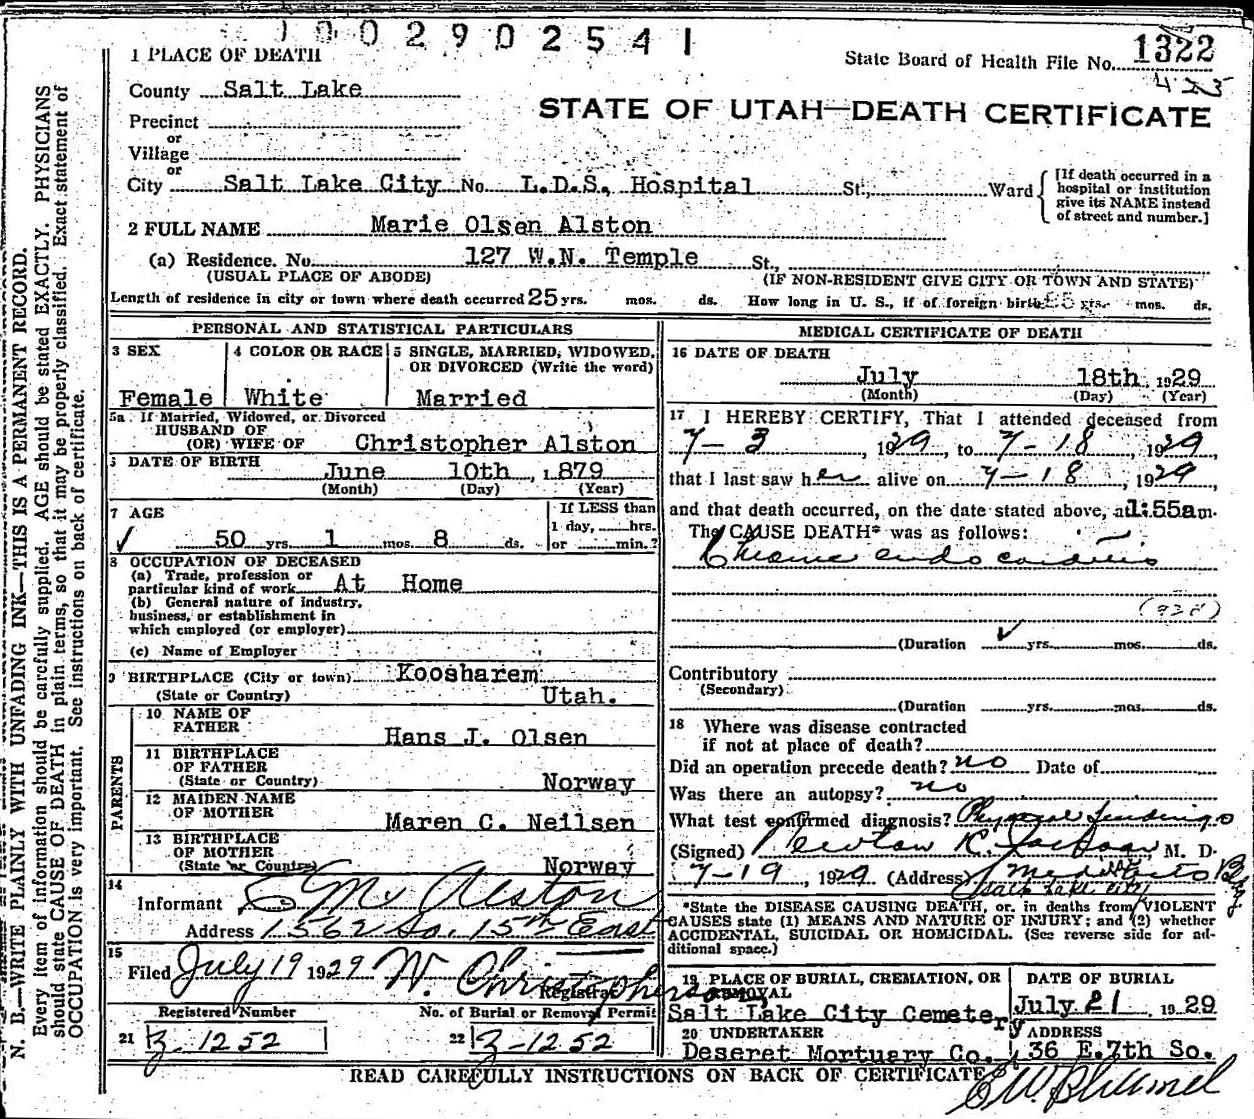 1002902541
1 PLACE OF DEATH
State Board of Health File No. 1322
425
County Salt Lake
STATE OF UTAH—DEATH CERTIFICATE
Precinct
or
Village
or
City Salt Lake City No. L.D.S. Hospital St., Ward
[If death occurred in a hospital or institution give its NAME instead of street and number.]
2 FULL NAME Marie Olsen Alston
(a) Residence. No. 127 W.N. Temple St.,
(USUAL PLACE OF ABODE) (IF NON-RESIDENT GIVE CITY OR TOWN AND STATE)
Length of residence in city or town where death occurred 25 yrs. mos. ds. How long in U. S., if of foreign birth yrs. mos. ds.
PERSONAL AND STATISTICAL PARTICULARS
3 SEX
Female
4 COLOR OR RACE
White
5 SINGLE, MARRIED, WIDOWED,
OR DIVORCED (Write the word)
Married
5a If Married, Widowed, or Divorced
HUSBAND OF
(OR) WIFE OF Christopher Alston
6 DATE OF BIRTH
June 10th, 1879
(Month) (Day) (Year)
7 AGE
50 yrs. 1 mos. 8 ds.
If LESS than
1 day, hrs.
or min.?
8 OCCUPATION OF DECEASED
(a) Trade, profession or
particular kind of work At Home
(b) General nature of industry,
business, or establishment in
which employed (or employer)
(c) Name of Employer
9 BIRTHPLACE (City or town) Koosharem
(State or Country) Utah.
PARENTS
10 NAME OF
FATHER Hans J. Olsen
11 BIRTHPLACE
OF FATHER
(State or Country) Norway
12 MAIDEN NAME
OF MOTHER Maren C. Neilsen
13 BIRTHPLACE
OF MOTHER
(State or Country) Norway
14
Informant Alston
Address 1562 So. 15th East
15
Filed July 19 1929 W. Christopherson
Registrar
Registered Number No. of Burial or Removal Permit
21 Z-1252 22 Z-1252
MEDICAL CERTIFICATE OF DEATH
16 DATE OF DEATH
July 18th, 1929
(Month) (Day) (Year)
17 I HEREBY CERTIFY, That I attended deceased from
7-3, 1929, to 7-18, 1929,
that I last saw her alive on 7-18, 1929,
and that death occurred, on the date stated above, at 1:55am.
The CAUSE DEATH* was as follows:
Chronic endocarditis
(Duration yrs. mos. ds.
Contributory
(Secondary)
(Duration yrs. mos. ds.
18 Where was disease contracted
if not at place of death?
Did an operation precede death? no Date of
Was there an autopsy? no
What test confirmed diagnosis? Physical findings
(Signed) M. D.
7-19, 1929 (Address)
Salt Lake City
*State the DISEASE CAUSING DEATH, or, in deaths from VIOLENT
CAUSES state (1) MEANS AND NATURE OF INJURY; and (2) whether
ACCIDENTAL, SUICIDAL OR HOMICIDAL. (See reverse side for ad-
ditional space.)
19 PLACE OF BURIAL, CREMATION, OR
REMOVAL
Salt Lake City Cemetery
DATE OF BURIAL
July 21, 1929
20 UNDERTAKER
Deseret Mortuary Co.
ADDRESS
36 E.7th So.
READ CAREFULLY INSTRUCTIONS ON BACK OF CERTIFICATE
N. B.—WRITE PLAINLY WITH UNFADING INK—THIS IS A PERMANENT RECORD.
Every item of information should be carefully supplied. AGE should be stated EXACTLY. PHYSICIANS
should state CAUSE OF DEATH in plain terms, so that it may be properly classified. Exact statement of
OCCUPATION is very important. See instructions on back of certificate.